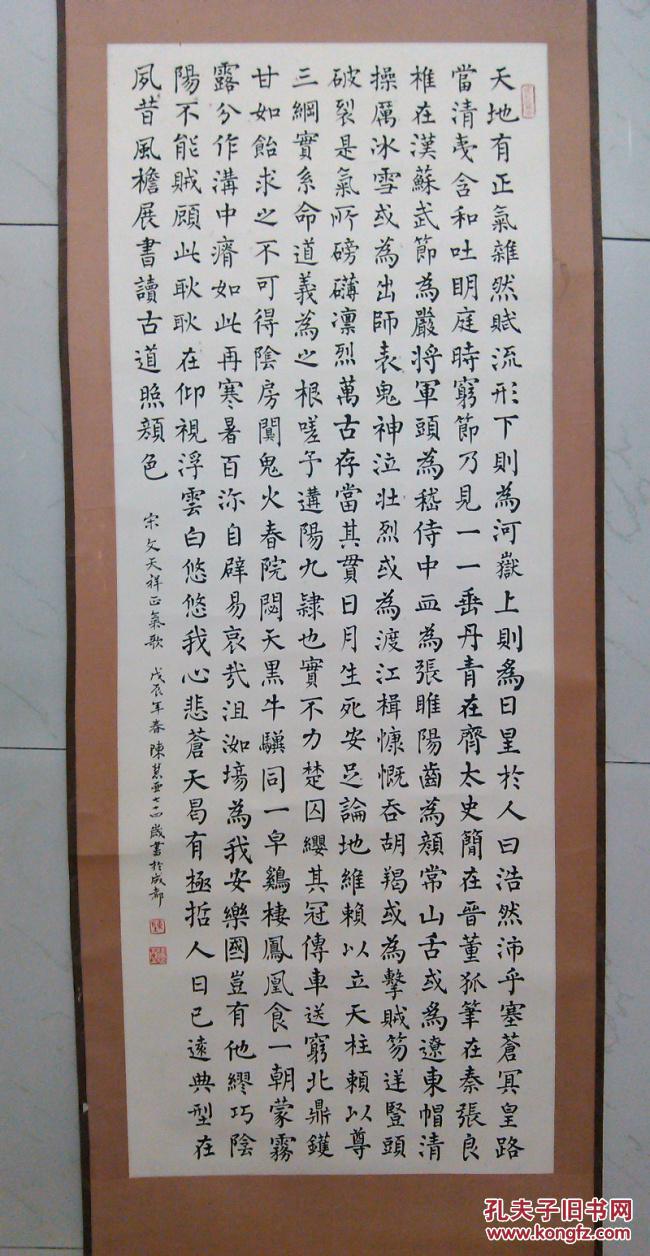 天地有正氣雜然賦流形下則為河嶽上則為日星於人曰浩然沛乎塞蒼冥皇路
當清夷含和吐明庭時窮節乃見一一垂丹青在齊太史簡在晋董狐筆在秦張良
椎在漢蘇武節為嚴將軍頭為嵇侍中血為張睢陽齒為顏常山舌或為遼東帽清
操厲冰雪或為出師表鬼神泣壯烈或為渡江楫慷慨吞胡羯或為擊賊笏逆豎頭
破裂是氣所磅礴凛烈萬古存當其貫日月生死安足論地維賴以立天柱賴以尊
三綱實系命道義為之根嗟予遘陽九隸也實不力楚囚纓其冠傳車送窮北鼎鑊
甘如飴求之不可得陰房闃鬼火春院閟天黑牛驥同一皁鷄棲鳳凰食一朝蒙霧
露分作溝中瘠如此再寒暑百沴自辟易哀哉沮洳場為我安樂國豈有他繆巧陰
陽不能賊顧此耿耿在仰視浮雲白悠悠我心悲蒼天曷有極哲人日已遠典型在
夙昔風檐展書讀古道照顏色
宋文天祥正氣歌 戊辰年春陳 七十四歲書於成都
孔夫子旧书网
www.kongfz.com